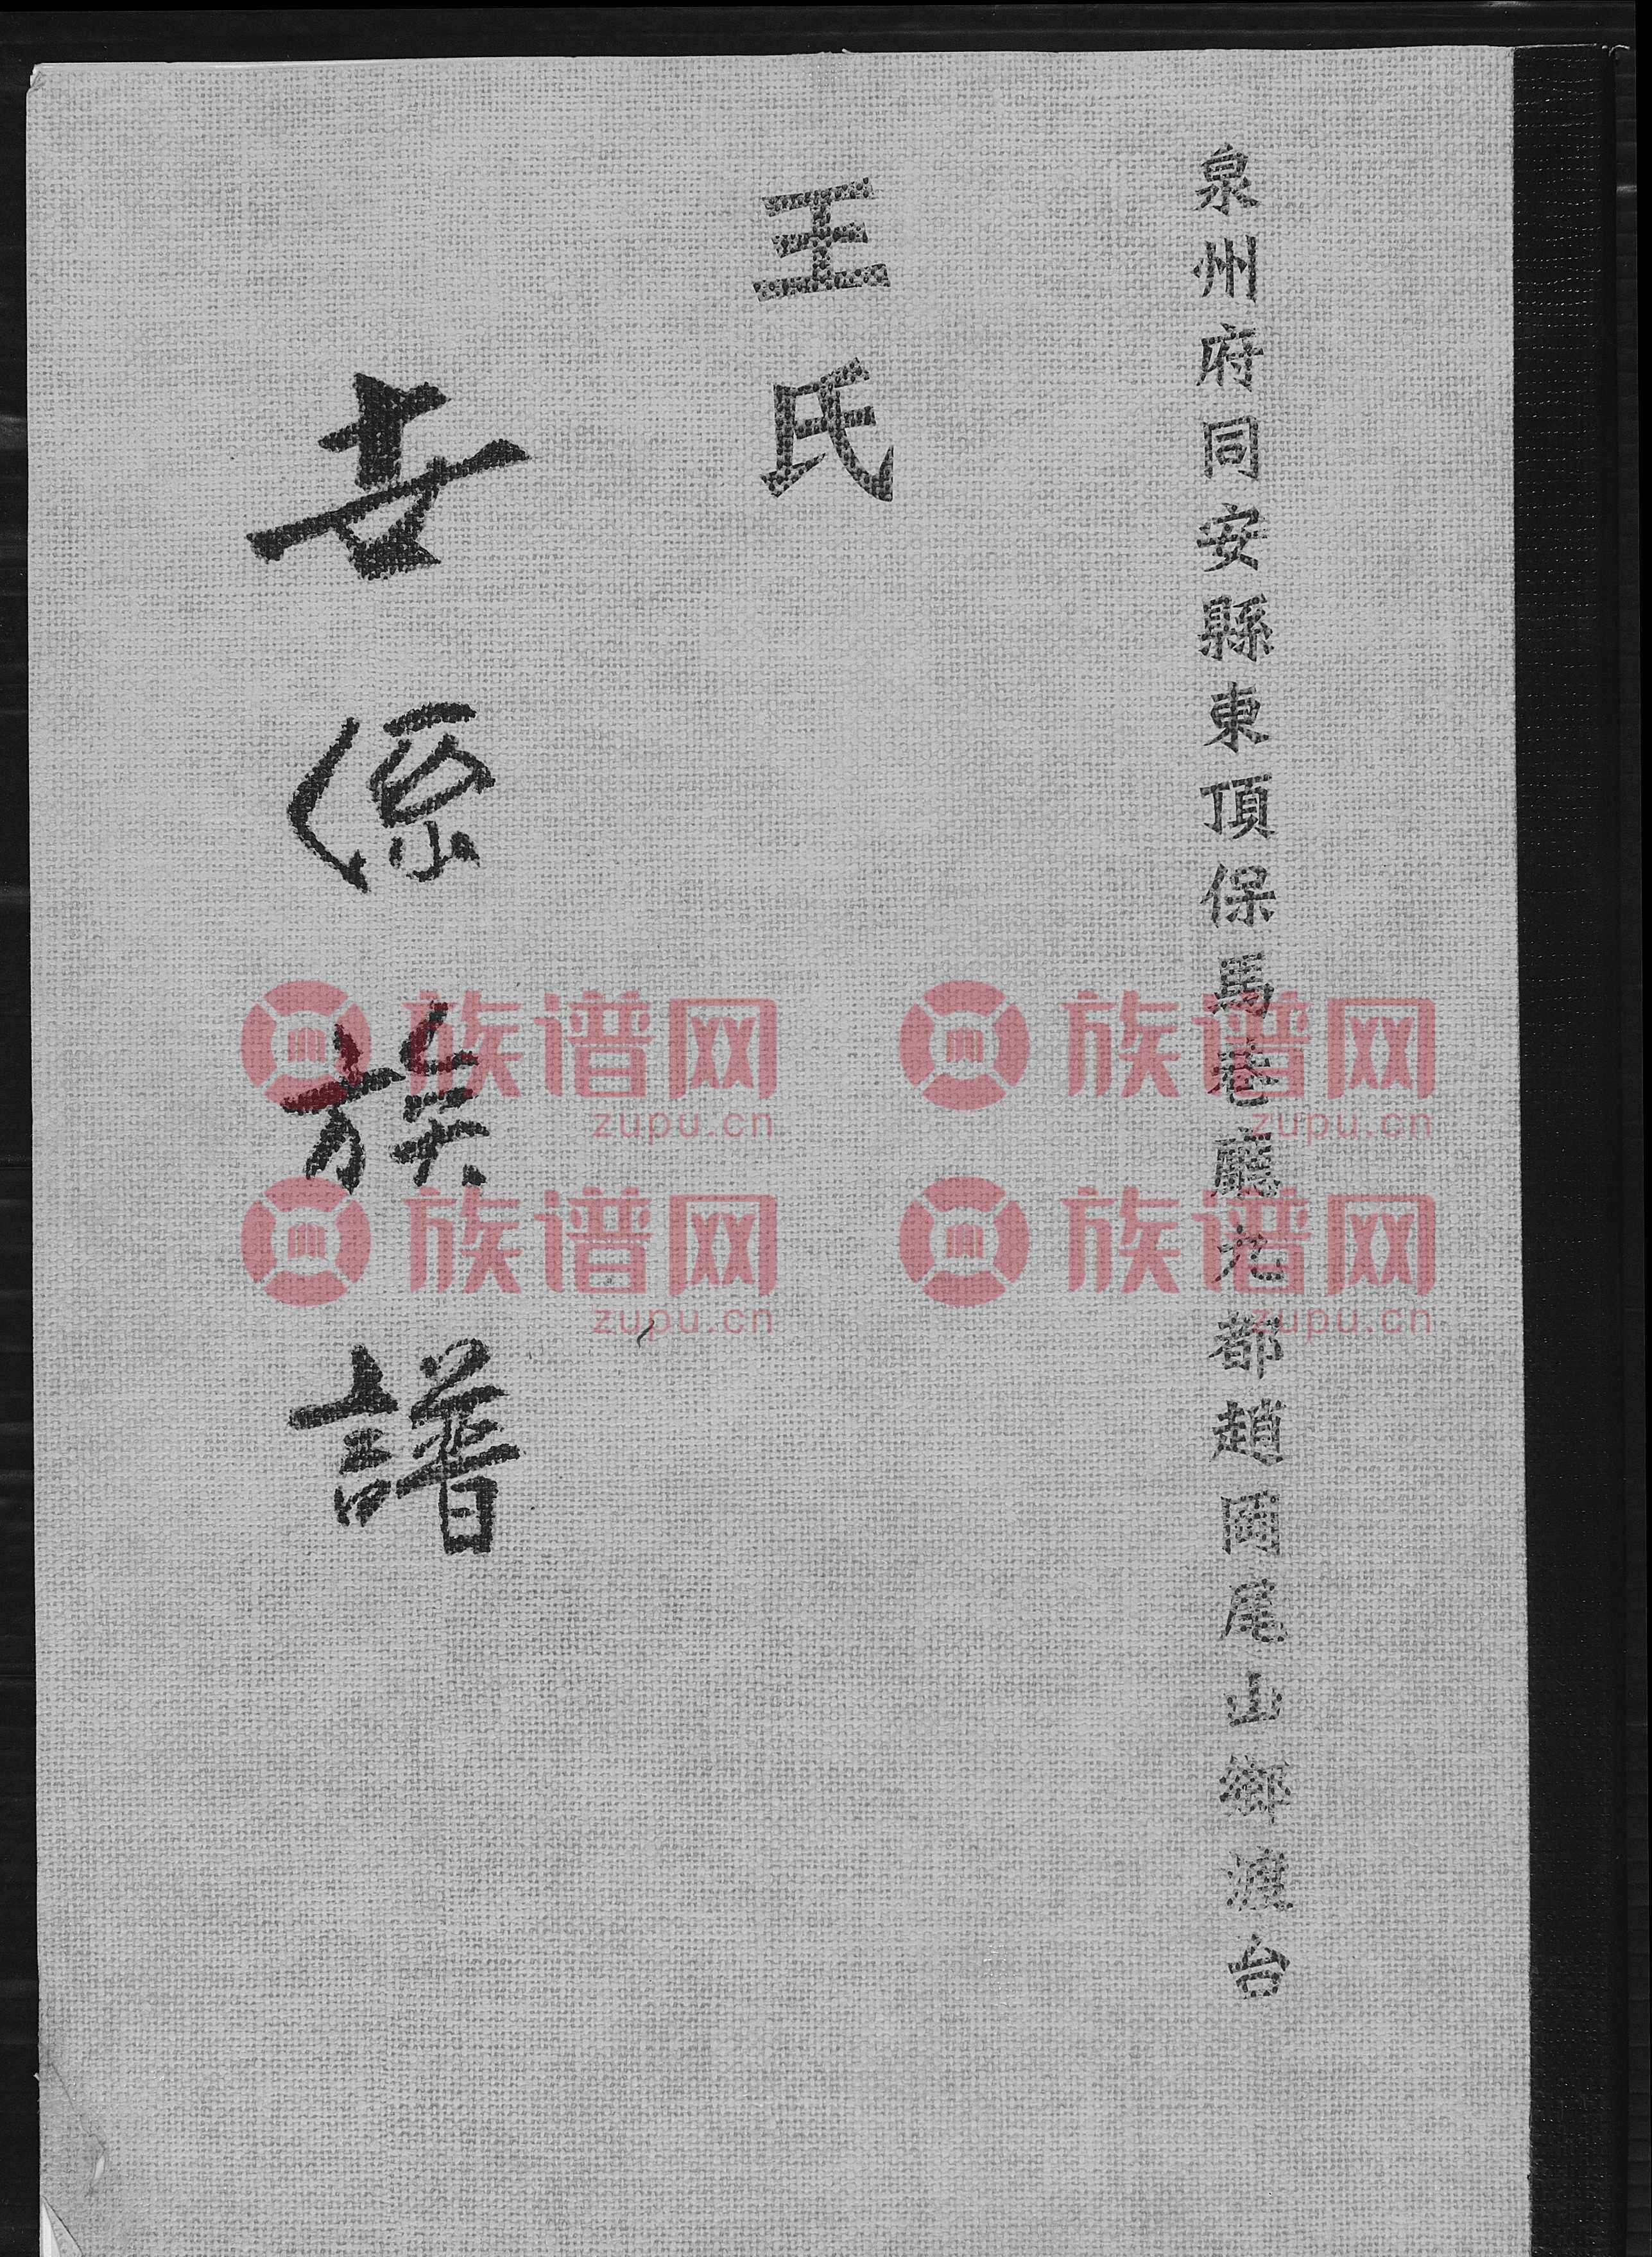 泉州府同安縣東頂保馬巷廳九都趙岡尾山鄉渡台
王氏
世係族譜
族谱网 zupu.cn
族谱网 zupu.cn
族谱网 zupu.cn
族谱网 zupu.cn